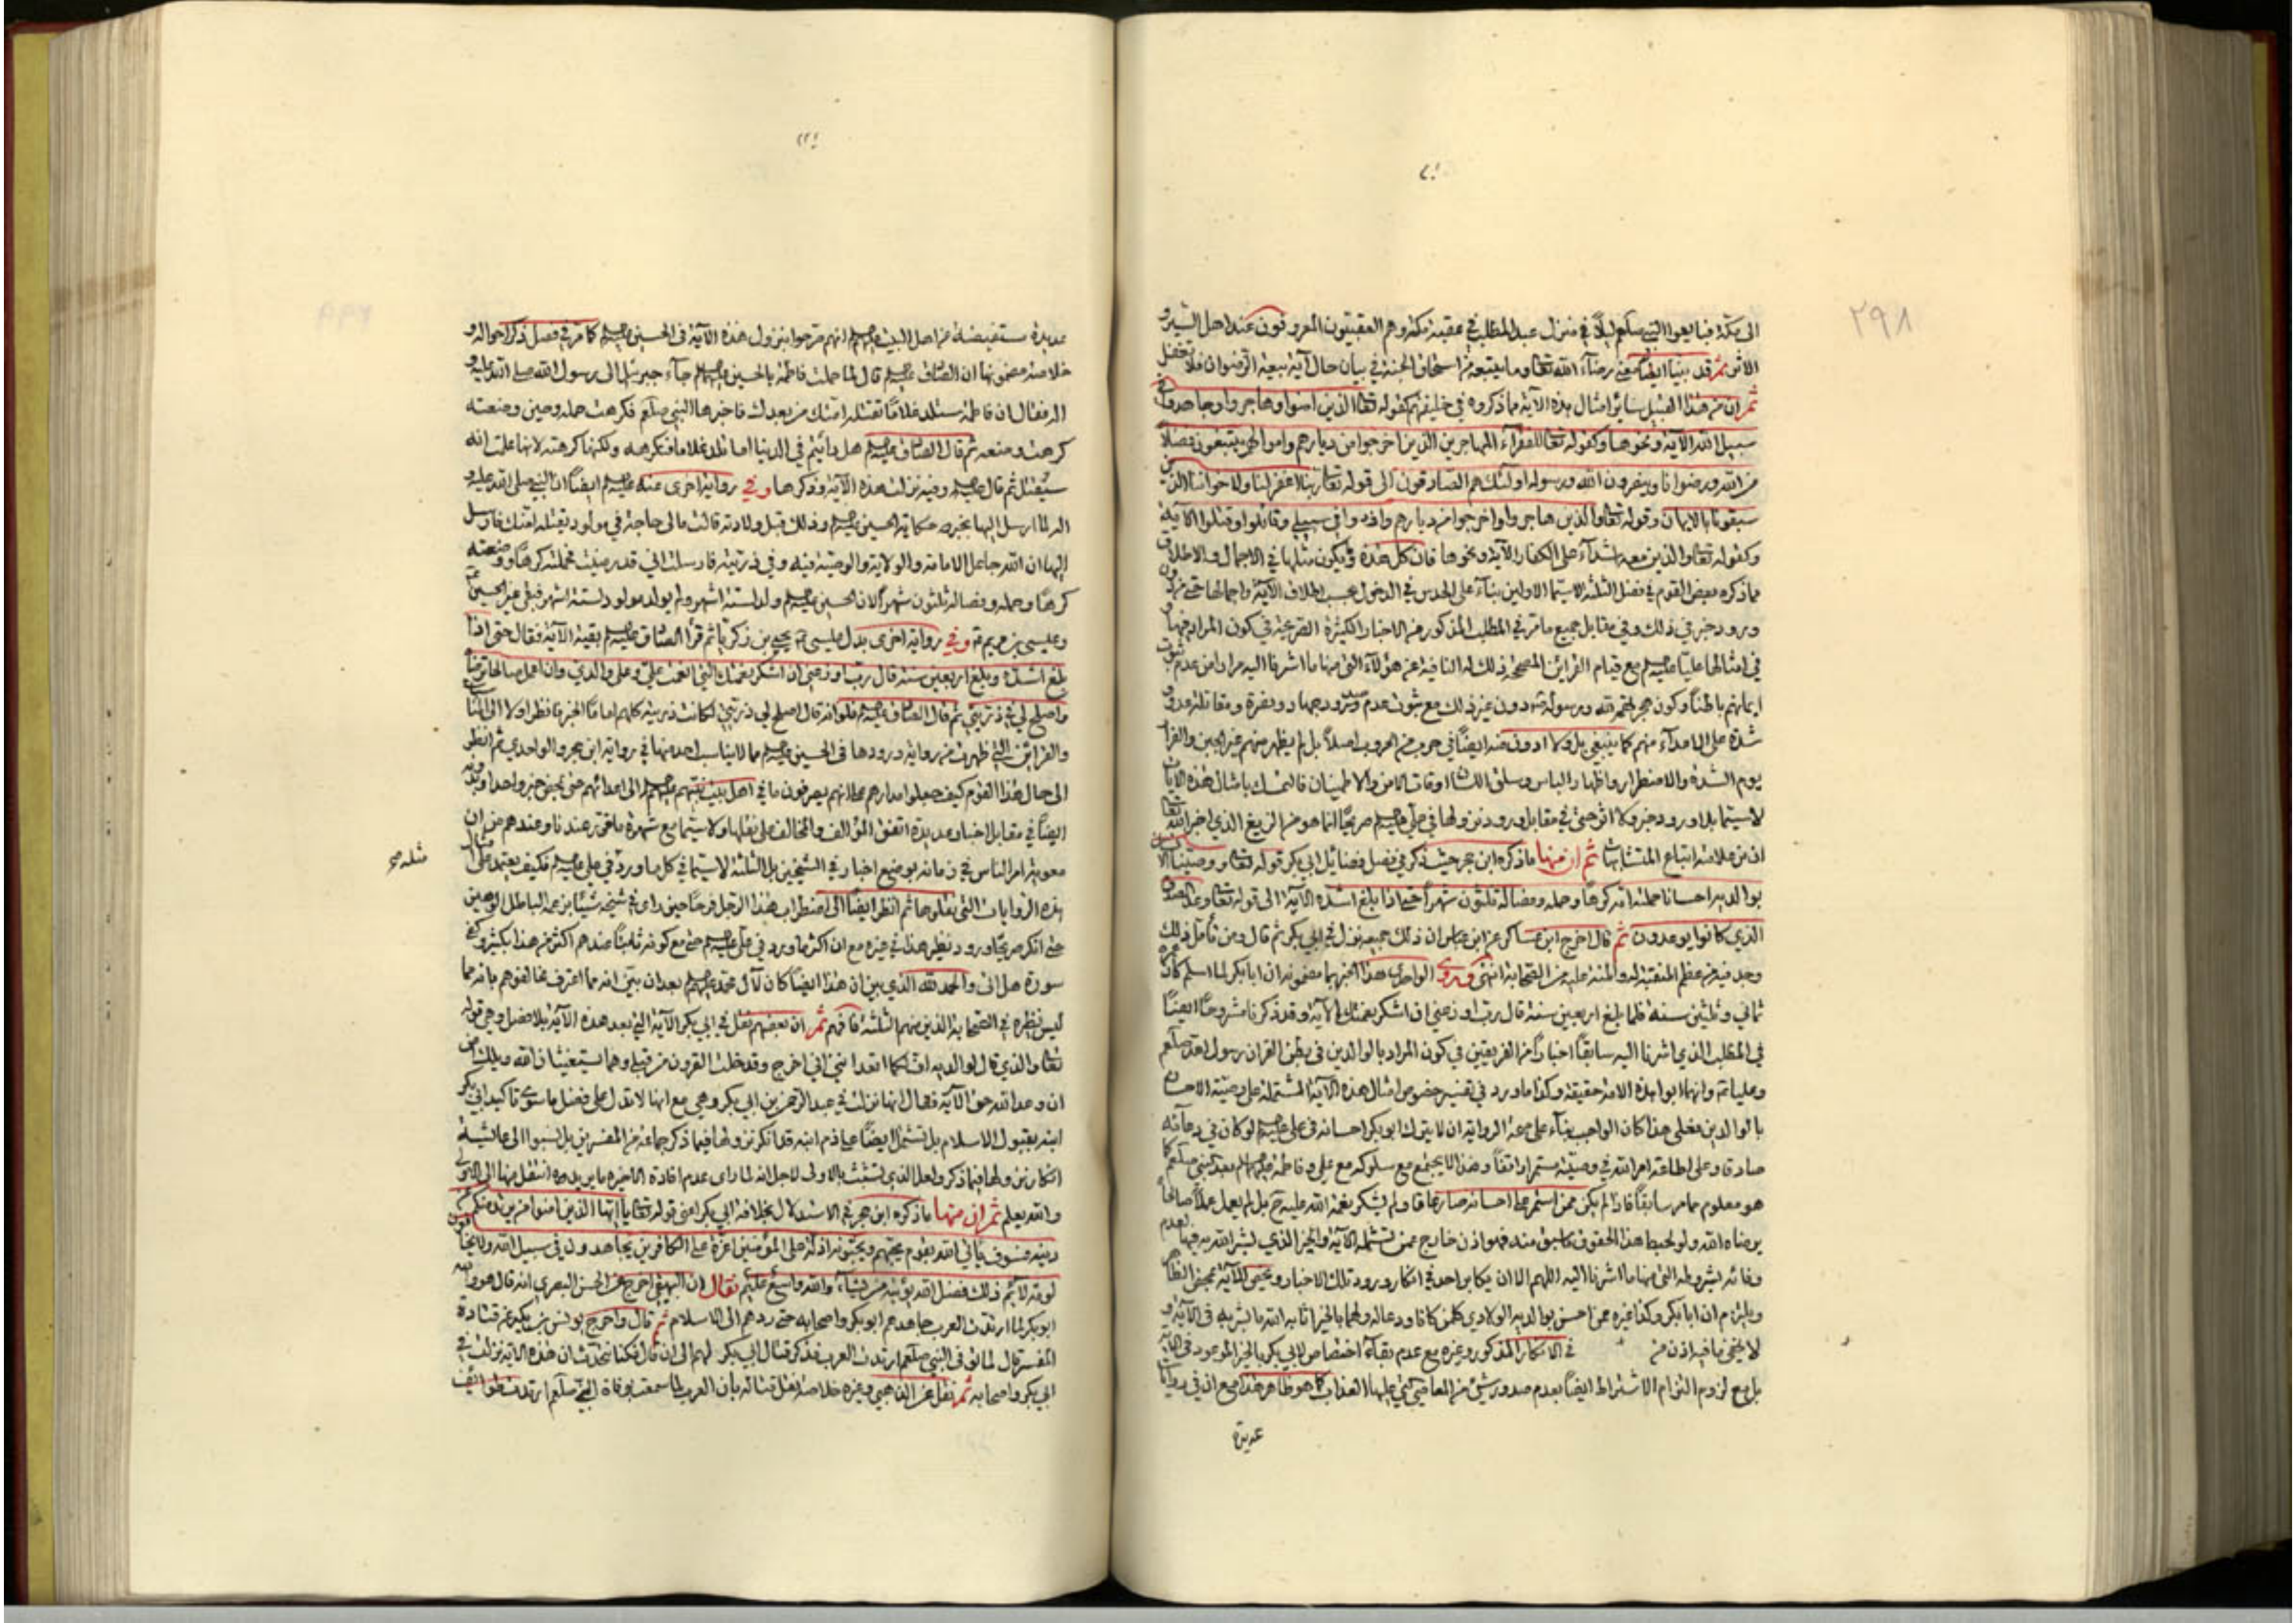 ٢٩٨
الى مكة فبايعوا النبي صلعم ليلاً في منزل عبد المطلب في عقبة مكة وهم العقبيون المعروفون عند اهل السير و
الاثر ثم قد بينا ايضا معنى رضآء الله تعا وما يتبعه من استحقاق الجنة في بيان حال آية بيعة الرضوان فلا تغفل
ثم ان من هذا القبيل ساير امثال هذه الآية مما ذكروه في خليفتهم كقوله تعا الذين امنوا وهاجروا وجاهدوا في
سبيل الله الآية ونحوها وكقوله تعا للفقرآء المهاجرين الذين اخرجوا من ديارهم واموالهم يبتغون فضلاً
من الله ورضوانا وينصرون الله ورسوله اولئك هم الصادقون الى قوله تعا ربنا اغفر لنا ولاخواننا الذين
سبقونا بالايمان وقوله تعا والذين هاجروا واخرجوا من ديارهم واوذوا في سبيلي وقاتلوا وقتلوا الآية
وكقوله تعا والذين معه اشدآء على الكفار الآية ونحوها فان كل هذه ويكون مثلها في الاجمال والاطلاق
مما ذكره بعض القوم في فضل الثلثة لاسيما الاولين بنآء على الحدس في الدخول بحسب اطلاق الآية واجمالها حتى من دون
ورود خبر في ذلك وفي مقابل جميع ما مر في المطلب المذكور من الاخبار الكثيرة الصريحة في كون المراد فيها و
في امثالها عليّا عليه السلم مع قيام القراين المصححة ذلك له النافية عن هؤلآء التي منها ما اشرنا اليه مرارا من عدم ثبوت
ايمانهم باطنا وكون هجرتهم لله ورسوله دون غير ذلك مع ثبوت عدم صدور جهاد ونصرة ومقاتلة عدو و
شدة على الاعدآء منهم كما ينبغي بل ولا ادون منه ايضاً في حرب من الحروب اصلاً بل لم يظهر منهم غير الجبن والفرار
يوم الشدة والاضطرار واظهار الباس وسلق اللسان اوقات الامن والاطمينان فالتمسك بامثال هذه الآيات
لاسيما بلا ورود خبر ولا اثر حتى في مقابل ورود نزولها في علي عليه السلم صريحًا انما هو من الزيغ الذي اخبر الله تعا
ان من علامته اتباع المتشابهات ثم ان منها ما ذكره ابن حجر حيث ذكر في فضل فضائل ابي بكر قوله تعا ووصينا الانسان
بوالديه احسانا حملته امه كرها وحمله وفصاله ثلثون شهراً حتى اذا بلغ اشده الآية الى قوله تعا وعد الصدق
الذي كانوا يوعدون ثم قال اخرج ابن عساكر عن ابن عباس ان ذلك جميعه نزل في ابي بكر ثم قال ومن تأمل ذلك
وجد فيه من عظم المنقبة له والمنة عليه من الصحابة انتهى وروى الواحدي هذا الخبر بما مضمونه ان ابا بكر لما اسلم كان
ثماني وثلثين سنة فلما بلغ اربعين سنة قال رب اوزعني ان اشكر نعمتك الآية وقد ذكرنا مشروحاً ايضاً
في المطلب الذي اشرنا اليه سابقاً اخباراً من الفريقين في كون المراد بالوالدين في بطن القران رسول الله صلعم
وعليا عم وانهما ابوا هذه الامة حقيقة وكذا ما ورد في تفسير خصوص امثال هذه الآية المشتملة على وصية الاحسان
بالوالدين فعلى هذا كان الواجب بنآء على صحة الرواية ان لا يترك ابو بكر احسانه في علي عليه السلم لو كان في دعآئه
صادقا وعلى اطاعة امر الله في وصيته مستمرا واقفاً وهذا لا يجتمع مع سلوكه مع علي وفاطمة عليهما السلم بعد النبي صلعم كما
هو معلوم مما مر سابقاً فاذا لم يكن ممن استمر على احسانه صار عاقا ولم يشكر نعمة الله عليه ح بل لم يعمل عملاً صالحاً
يرضاه الله ولو لحبط هذا الحقوق كما سبق منه فهو اذن خارج عمن تشمله الآية والخبر الذي بشر الله به فيها لعدم
وفائه بشروطه التي منها ما اشرنا اليه اللهم الا ان يكابر احد في انكار ورود تلك الاخبار
ويلتزم ان ابا بكر وكذا غيره ممن احسن بوالديه الولادي كلهن كافا ودعا له ولهما بالخير اثابه الله ما بشر به في الآية و
لا يخفى ما فيه اذن من في الانكار المذكور وغيره مع عدم بقآء اختصاص لابي بكر بالخير الموعود في الآية
بل مع لزوم التزام الاشتراط ايضاً بعدم صدور شئ من المعاصي التي عليها العذاب كما هو ظاهر هذا مع ان في روايات
عديدة
عديدة مستفيضة عن اهل البيت عليهم السلم انهم صرحوا بنزول هذه الآية في الحسين عليه السلم كما مر في فصل ذكر احواله و
خلاصة مضمونها ان الصادق عليه السلم قال لما حملت فاطمة بالحسين عليهما السلم جآء جبرئيل الى رسول الله صلى الله عليه و
اله فقال ان فاطمة ستلد غلاماً تقتله امتك من بعدك فاخبرها النبي صلعم فكرهت حمله وحين وضعته
كرهت وضعه ثم قال الصادق عليه السلم هل رأيتم في الدنيا اما تلد غلاما فتكرهه ولكنها كرهته لانها علمت انه
سيُقتل ثم قال عليه السلم وفيه نزلت هذه الآية وذكرها وفي رواية اخرى عنه عليه السلم ايضاً ان النبي صلى الله عليه و
اله لما ارسل اليها يخبره حكاية الحسين عليه السلم وذلك قبل ولادته قالت مالي حاجة في مولود تقتله امتك فارسل
اليها ان الله جاعل الامامة والولاية والوصية فيه وفي ذريته فارسلت اني قد رضيت فحملته كرهاً ووضعته
كرهاً وحمله وفصاله ثلثون شهراً لان الحسين عليه السلم ولد لستة اشهر ولم يولد مولود لستة اشهر فبقى غير الحسين عم
وعيسى بن مريم عم وفي رواية اخرى بدل عيسى عم يحيى بن زكريا ثم قرأ الصادق عليه السلم بقية الآية فقال حتى اذا
بلغ اشده وبلغ اربعين سنة قال رب اوزعني ان اشكر نعمتك التي انعمت عليّ وعلى والدي وان اعمل صالحا ترضاه
واصلح لي في ذريتي ثم قال الصادق عليه السلم فلو انه قال اصلح لي ذريتي لكانت ذريته كلهم اماماً الخبر فانظر اولا الى المناسبة
والقرائن التي ظهرت من رواية ورودها في الحسين عليه السلم مما لا يناسب احد منها في رواية ابن حجر والواحدي ثم انظر
الى حال هذا القوم كيف جعلوا مدارهم على انهم يصرفون ما في اهل بيت نبيهم عليهم السلم الى اعدائهم حتى بمحض خبر واحد
ايضاً في مقابل اخبار عديدة اتفق المؤالف والمخالف على نقلها ولاسيما مع شهرة ما تقرر عندنا وعندهم من ان
معوية امر الناس في زمانه بوضع اخبار في الشيخين بل الثلثة لاسيما في كل ما ورد في علي عليه السلم فكيف يعتمد على
مثله صح
هذه الروايات التي نقلوها ثم انظر ايضاً الى اضطراب هذا الرجل فرحاً حين راى في شيخه شيئا من
حتى انكر صريحا ورود نظير هذا في غيره مع ان اكثر ما ورد في علي عليه السلم حتى مع كونه ثابتا عندهم اكثر من هذا بكثير
سورة هل اتى والحمد لله الذي بين ان هذا ايضاً كان لآل محمد عليهم السلم بعد ان بين انه مما اعترف مخالفوهم بانه مما
ليس نظيره في الصحابة الذين منهم الثلثة فافهم ثم ان بعضهم نقل في ابي بكر الآية التي بعد هذه الآية بلا فصل وهي قوله
تعا والذي قال لوالديه اف لكما اتعدانني ان اخرج وقد خلت القرون من قبلي وهما يستغيثان الله ويلك امن
ان وعد الله حق الآية فقال انها نزلت في عبد الرحمن بن ابي بكر وهي مع انها لا تدل على فضل ما سوى تاكيد ابي بكر
ابنه بقبول الاسلام بل تشتمل ايضاً على ذم ابنه قد انكر نزولها فيما ذكر جماعة من المفسرين بل نسبوا الى عائشة
انكار نزولها فيما ذكر ولعل الذي تشبث بالاولى لاجل انه لما راى عدم افادة الاخيرة ما يريده انتقل منها الى الاولى
والله يعلم ثم ان منها ما ذكره ابن حجر في الاستدلال بخلافة ابي بكر اعني قوله تعا يا ايها الذين امنوا من يرتد منكم عن
دينه فسوف ياتي الله بقوم يحبهم ويحبونه اذلة على المؤمنين اعزة على الكافرين يجاهدون في سبيل الله ولا يخافون
لومة لآئم ذلك فضل الله يؤتيه من يشآء والله واسع عليم فقال ان البيهقي اخرج عن الحسن البصري انه قال هو والله
ابو بكر لما ارتدت العرب جاهدهم ابو بكر واصحابه حتى ردهم الى الاسلام ثم قال واخرج يونس بن بكير عن قتادة
المفسر قال لما توفى النبي صلعم ارتدت العرب فذكر قتال ابي بكر لهم الى ان قال فكنا نتحدث ان هذه الآية نزلت في
ابي بكر واصحابه ثم نقل عن الذهبي وغيره خلاصة نقل قتاله بان العرب لما سمعت بوفاة النبي صلعم ارتدت طوائف